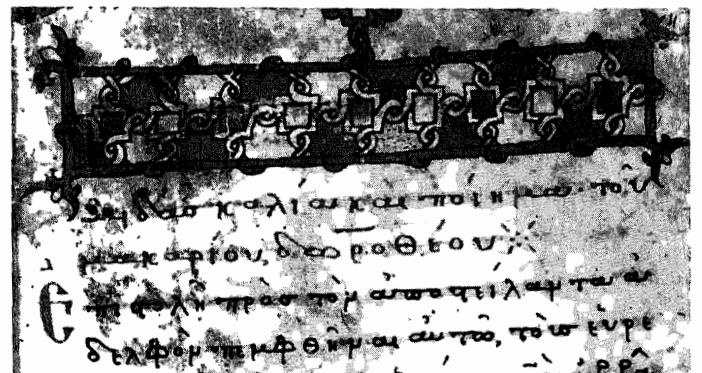 διδασκαλίαι και ποίημα τοῦ
μακαρίου, δωροθέου
Ἐπιστολὴ πρὸσ τὸν ἀποστείλαντα ἀ
δελφὸν πεμφθῆναι αὐτῶ, τοὺσ εὑρε